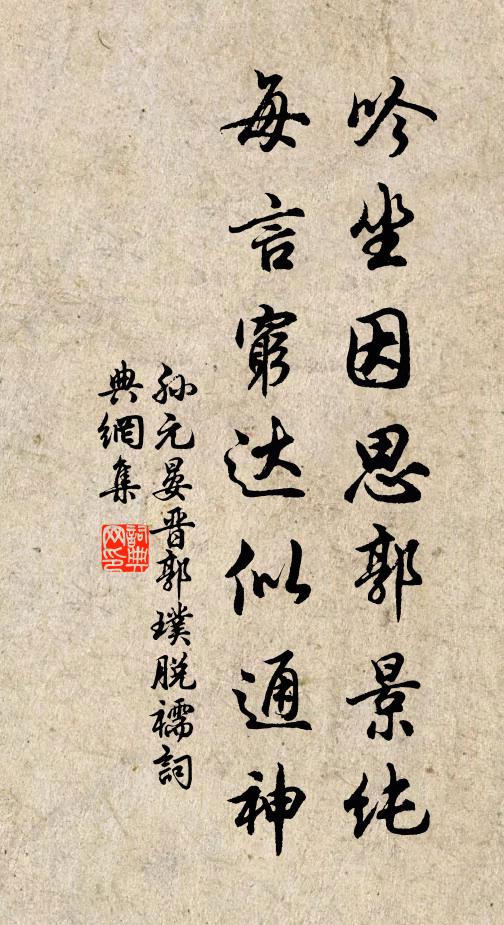 吟坐因思郭景纯
每言窮达似通神
孙元晏晋郭璞脱襦詞
典網集
詞典網印